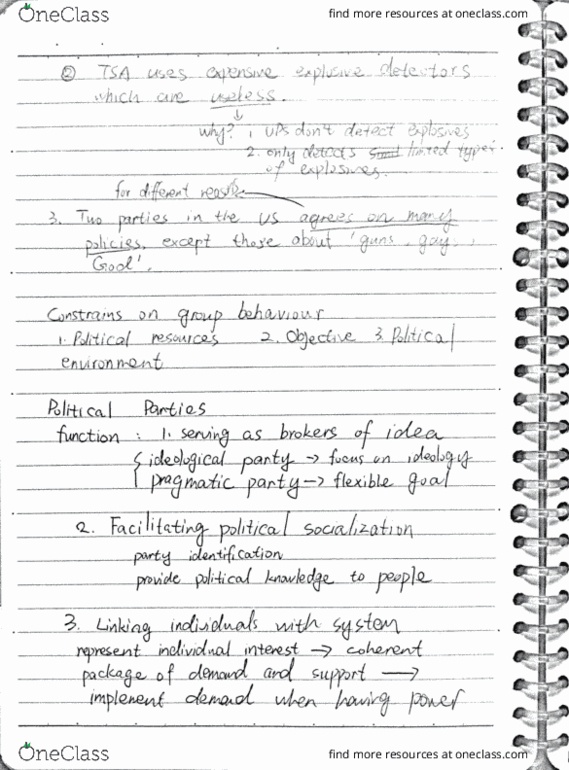 OneClass
find more resources at oneclass.com
② TSA uses expensive explosive detectors
which are useless.
↓
why? 1. UPs don't detect explosives
2. only detects limited types
of explosives.
for different reason
3. Two parties in the US agrees on many
policies, except those about 'guns, gay,
God'.
Constrains on group behaviour
1. Political resources 2. Objective 3. Political
environment
Political Parties
function : 1. serving as brokers of idea
{ ideological party → focus on ideology
pragmatic party → flexible goal
2. Facilitating political socialization
party identification
provide political knowledge to people
3. Linking individuals with system
represent individual interest → coherent
package of demand and support →
implement demand when having power
OneClass
find more resources at oneclass.com